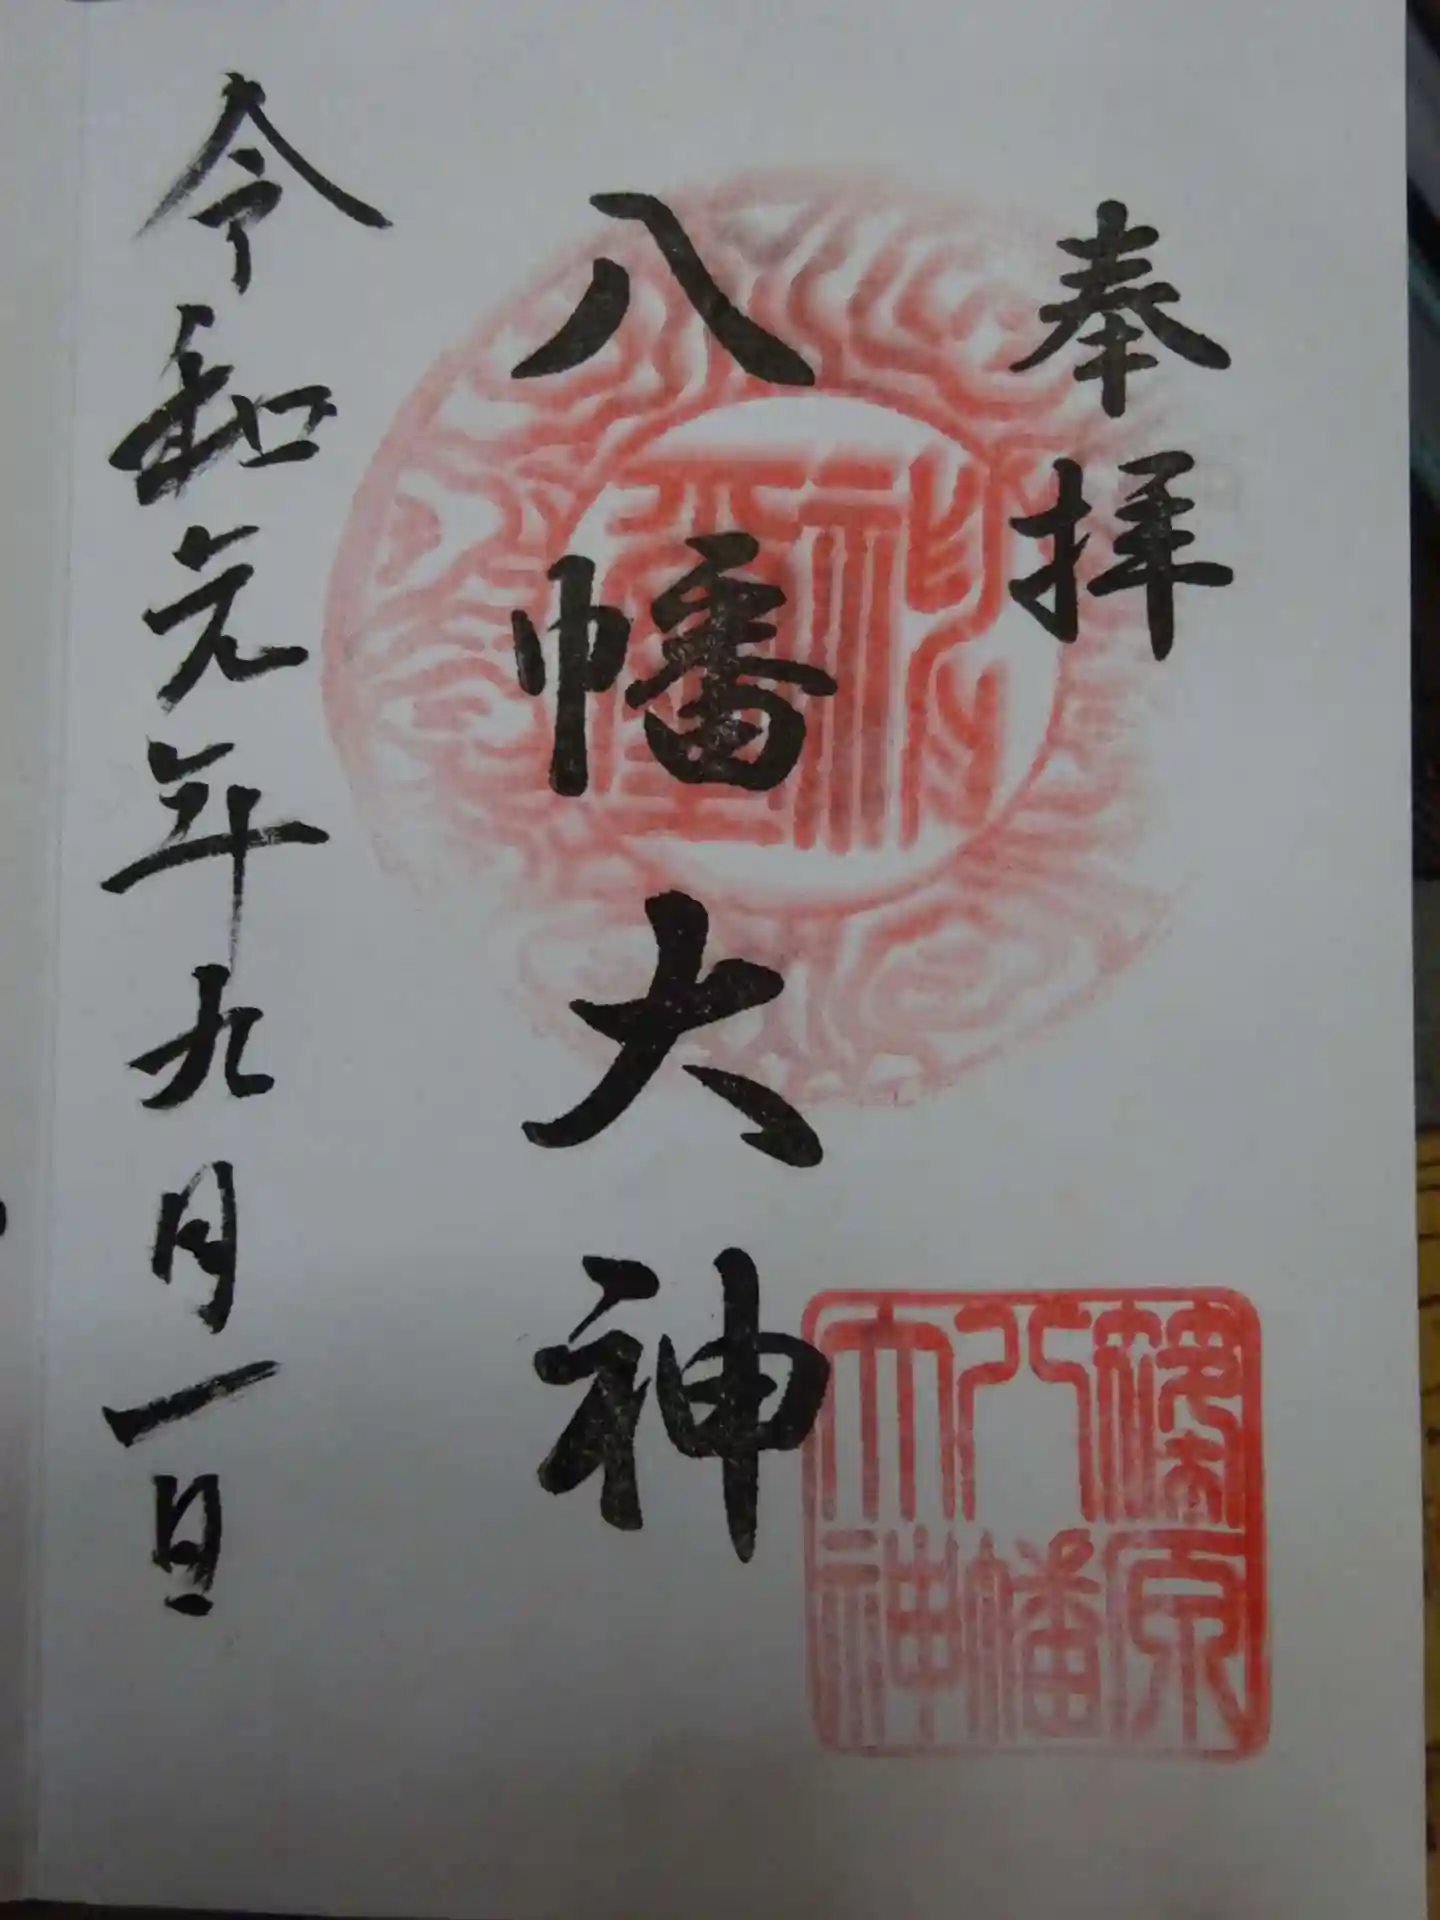 奉拝
八幡大神
令和元年九月一日
八幡
大神